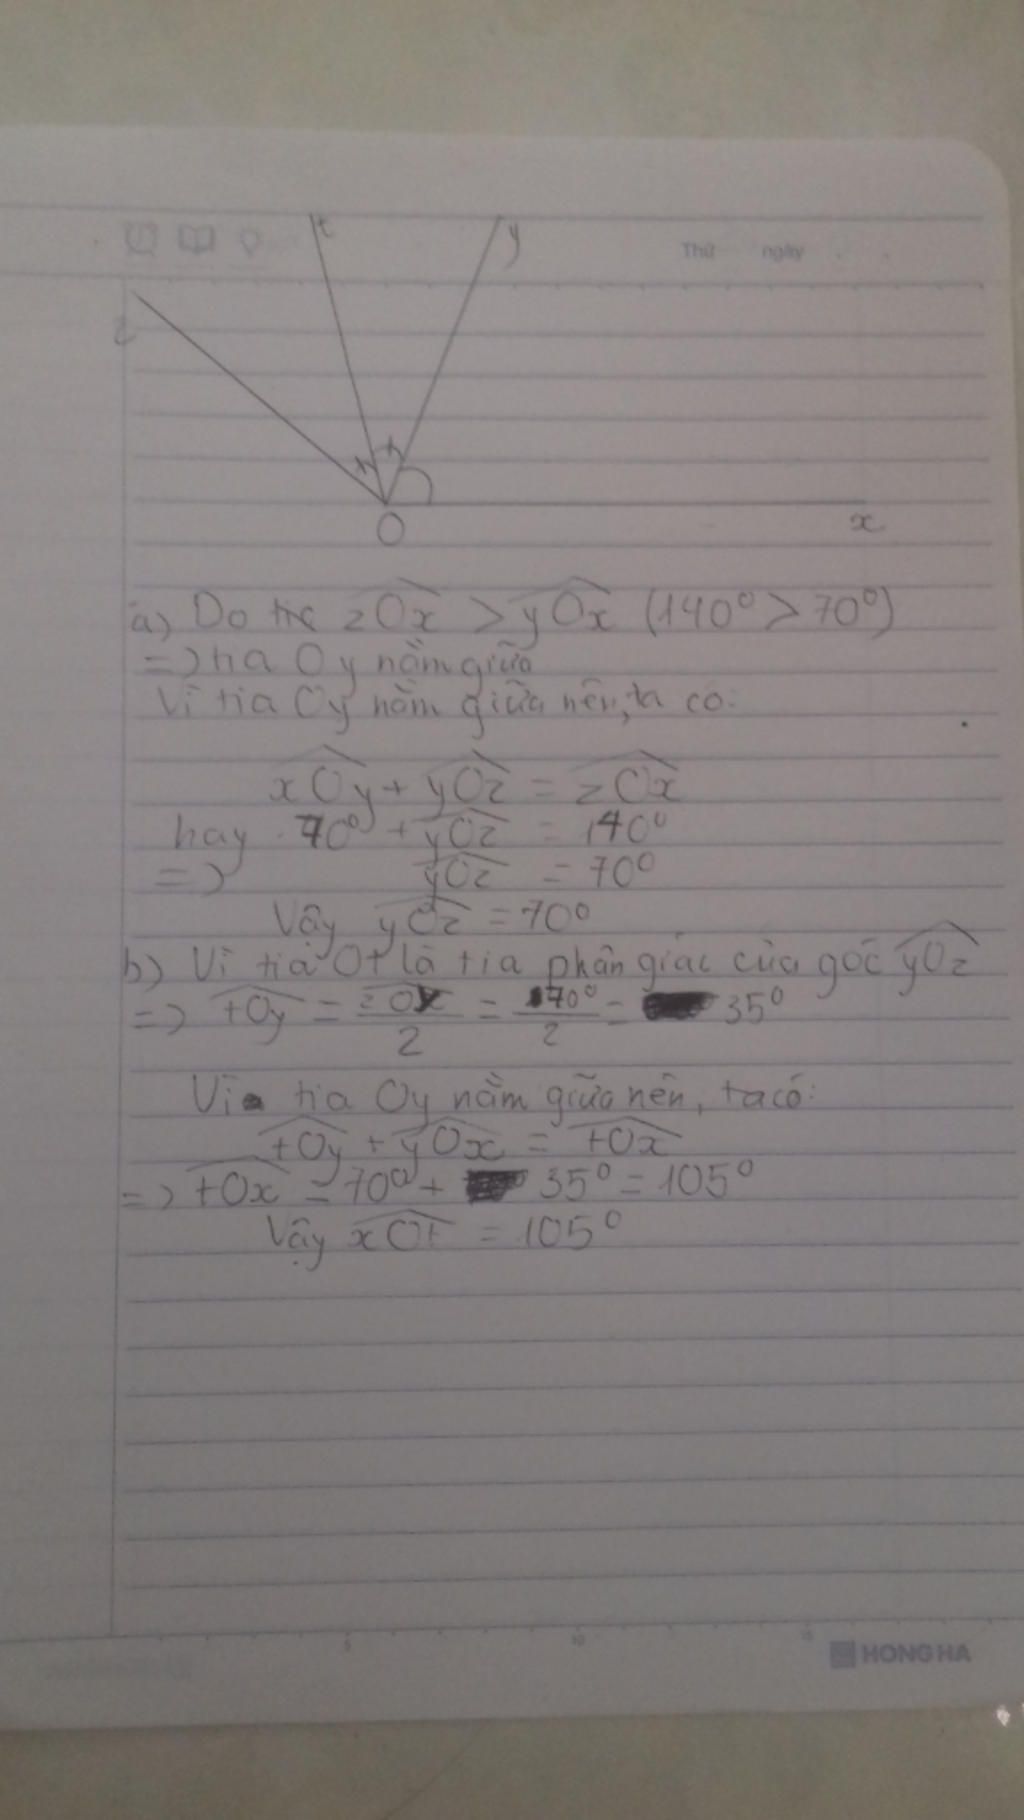 t
y
Thứ ngày
z
O
x
a) Do tia zOx > yOx (140° > 70°)
=> tia Oy nằm giữa
Vì tia Oy nằm giữa nên, ta có:
xOy + yOz = zOx
hay 70° + yOz = 140°
=> yOz = 70°
Vậy yOz = 70°
b) Vì tia Ot là tia phân giác của góc yOz
=> tOy = zOy/2 = 70°/2 = 35°
Vì tia Oy nằm giữa nên, ta có:
tOy + yOx = tOx
=> tOx = 70° + 35° = 105°
Vậy xOt = 105°
5 10 15
HONG HA